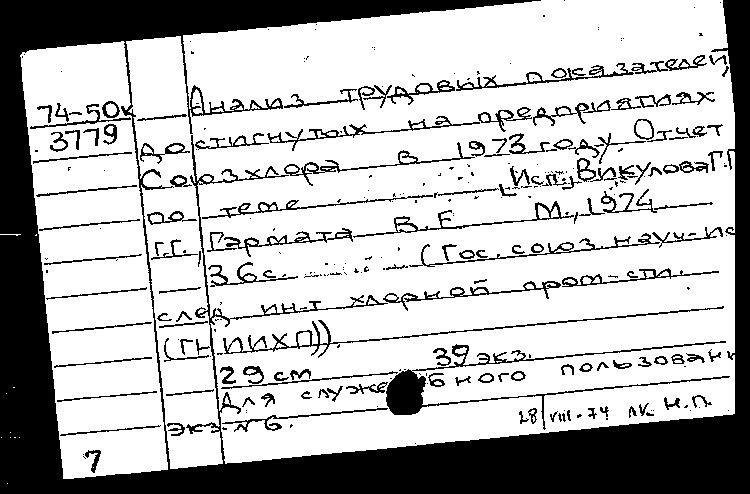 74-50к Анализ трудовых показателей,
3779 достигнутых на предприятиях
Союзхлора в 1973 году. Отчет
по теме [Исп.: Викулова Г.Г
Г.Г., Гармата В.Е М., 1974
36с. (Гос. союз науч-ис
след ин-т хлорной пром-сти.
(ГНИИХП)).
29 см 39 экз.
Для служебного пользовани
экз. N 6.
28/VIII-74 лк. Н.П.
7